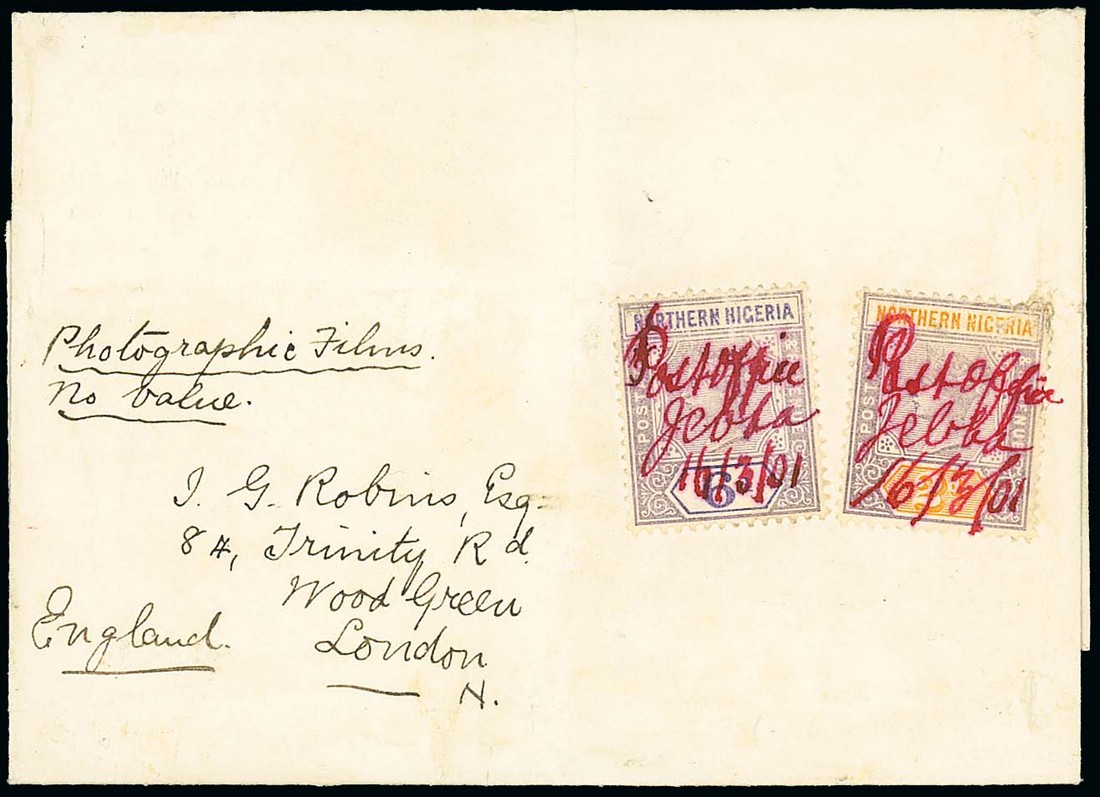 Photographic Films.
No Value.
J. G. Robins, Esq.
84, Trinity Rd.
Wood Green
London
N.
England.
NORTHERN NIGERIA
POSTAGE
Post office
Jebba
16/3/01
6
NORTHERN NIGERIA
POSTAGE
REVENUE
Post office
Jebba
16/3/01